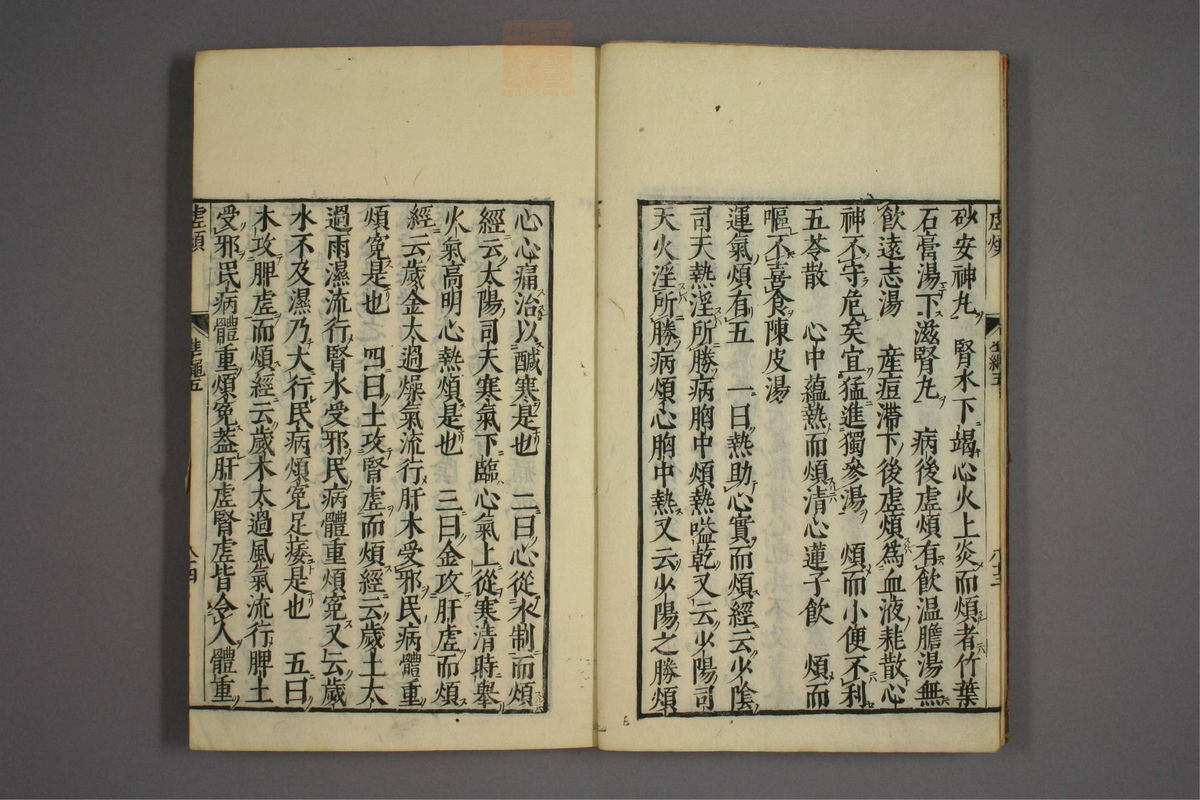 砂安神丸　腎水下竭心火上炎而煩者竹葉
石膏湯下滋腎丸　病後虛煩有飲温膽湯無
飲遠志湯　産痘滯下後虛煩爲血液耗散心
神不守危矣宜猛進獨參湯　煩而小便不利
五苓散　心中蘊熱而煩清心蓮子飲　煩而
嘔不喜食陳皮湯
運氣煩有五　一曰熱助心實而煩經云少陰
司天熱淫所勝病胸中煩熱嗌乾又云少陽司
天火淫所勝病煩心胸中熱又云少陽之勝煩
心心痛治以醎寒是也　二曰心從水制而煩
經云太陽司天寒氣下臨心氣上從寒清時舉
火氣高明心熱煩是也　三曰金攻肝虛而煩
經云歲金太過燥氣流行肝木受邪民病體重
煩寃是也　四曰土攻腎虛而煩經云歲土太
過雨濕流行腎水受邪民病體重煩寃又云歲
水不及濕乃大行民病煩寃足痿是也　五曰
木攻脾虛而煩經云歲木太過風氣流行脾土
受邪民病體重煩寃葢肝虛腎虛皆令人體重
虛煩　準繩五　八十四